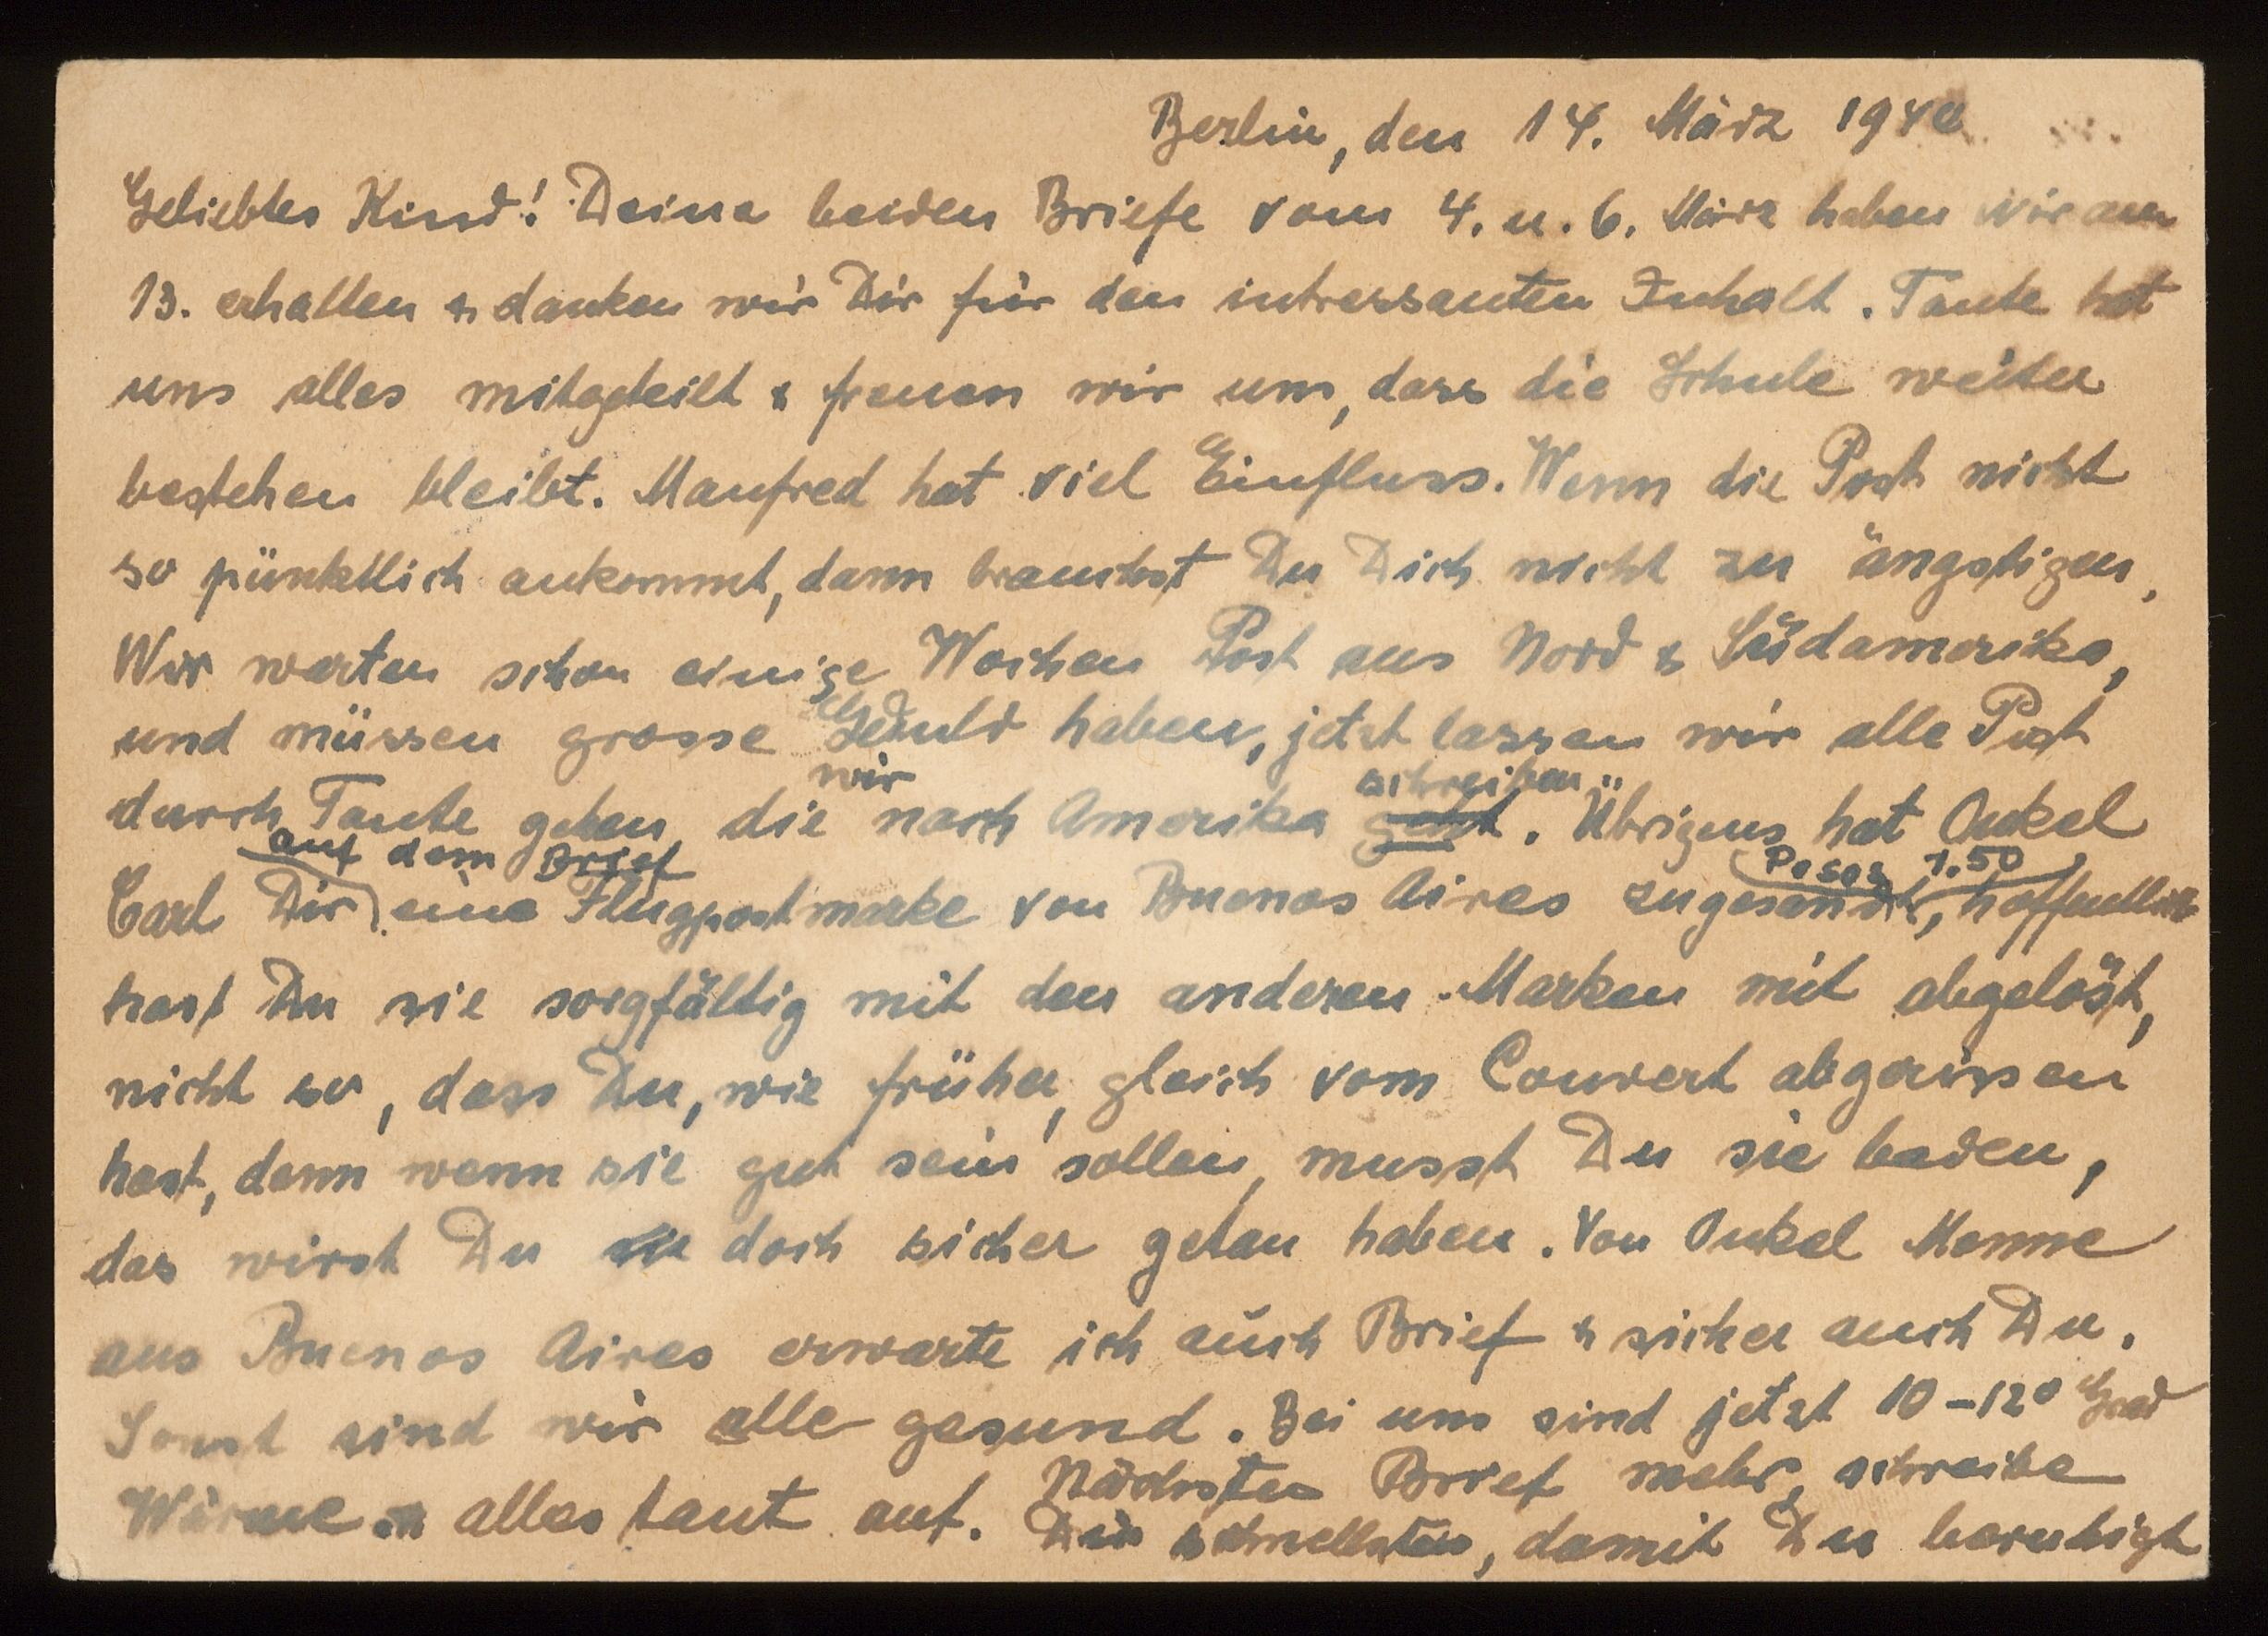 Berlin, den 14. März 1940
Geliebtes Kind! Deine beiden Briefe vom 4. u. 6. März haben wir am
13. erhalten & danken wir Dir für den intressanten Inhalt. Tante hat
uns alles mitgeteilt & freuen wir uns, dass die Schule weiter
bestehen bleibt. Manfred hat viel Einfluss. Wenn die Post nicht
so pünktlich ankommt, dann brauchst Du Dich nicht zu ängstigen.
Wir warten schon einige Wochen Post aus Nord & Südamerika,
und müssen grosse Geduld haben, jetzt lassen wir alle Post
wir schreiben
durch Tante gehen, die nach Amerika geht. Übrigens hat Onkel
auf dem Brief Pesos 1.50
Carl Dir eine Flugpostmarke von Buenos Aires zugesandt, hoffentlich
hast Du sie sorgfältig mit den anderen Marken mit abgelöst,
nicht so, dass Du, wie früher, gleich vom Couvert abgerissen
hast, denn wenn sie gut sein sollen, musst Du sie baden,
das wirst Du doch sicher getan haben. Von Onkel Menne
aus Buenos Aires erwarte ich auch Brief & sicher auch Du.
Sonst sind wir alle gesund. Bei uns sind jetzt 10-12° Grad
Wärme & alles taut auf. Nächsten Brief mehr, schreibe
Dir schnellstens, damit Du beruhigt